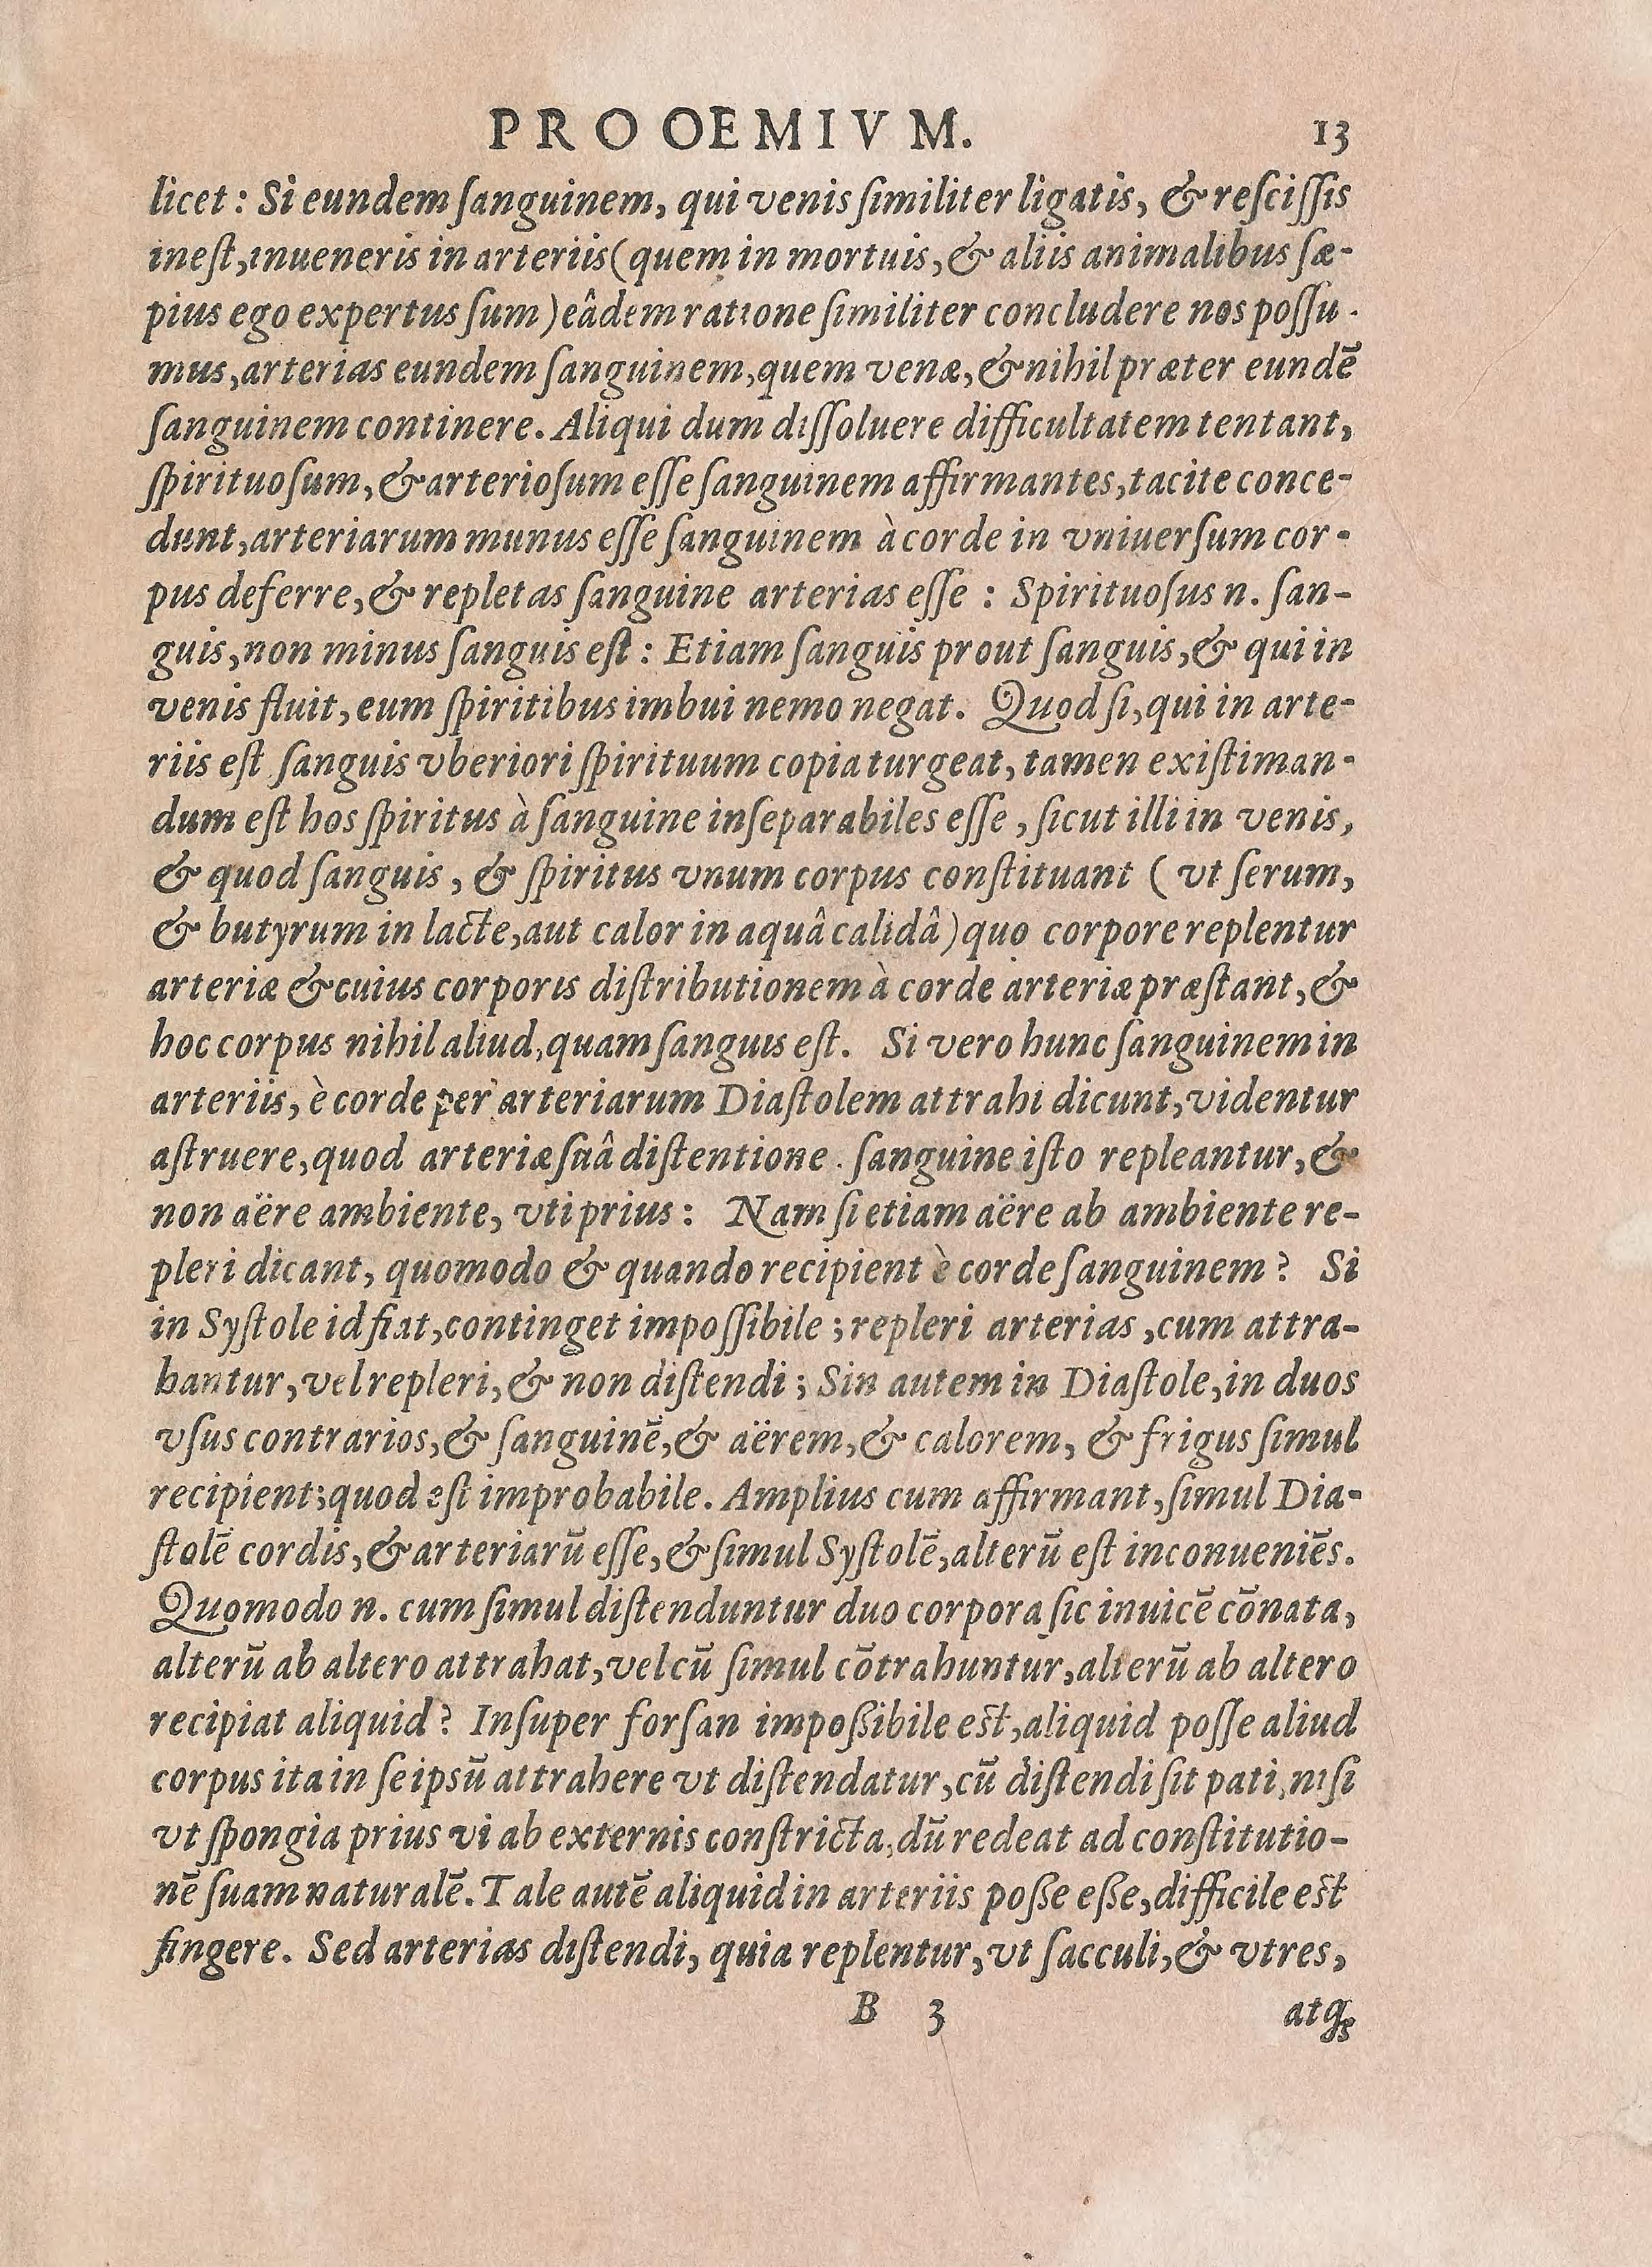 PROOEMIVM. 13
licet: Si eundem ſanguinem, qui venis ſimiliter ligatis, & reſciſſis
ineſt, inueneris in arteriis (quem in mortuis, & aliis animalibus ſæ-
pius ego expertus ſum) eâdem ratione ſimiliter concludere nos poſſu-
mus, arterias eundem ſanguinem, quem venæ, & nihil præter eundē
ſanguinem continere. Aliqui dum diſſoluere difficultatem tentant,
ſpirituoſum, & arterioſum eſſe ſanguinem affirmantes, tacite conce-
dunt, arteriarum munus eſſe ſanguinem à corde in vniuerſum cor-
pus deferre, & repletas ſanguine arterias eſſe : Spirituoſus n. ſan-
guis, non minus ſanguis eſt : Etiam ſanguis prout ſanguis, & qui in
venis fluit, eum ſpiritibus imbui nemo negat. Quod ſi, qui in arte-
riis eſt ſanguis vberiori ſpirituum copia turgeat, tamen exiſtiman-
dum eſt hos ſpiritus à ſanguine inſeparabiles eſſe, ſicut illi in venis,
& quod ſanguis, & ſpiritus vnum corpus conſtituant ( vt ſerum,
& butyrum in lacte, aut calor in aquâ calidâ ) quo corpore replentur
arteriæ & cuius corporis diſtributionem à corde arteriæ præſtant, &
hoc corpus nihil aliud, quam ſanguis eſt. Si vero hunc ſanguinem in
arteriis, è corde per arteriarum Diaſtolem attrahi dicunt, videntur
aſtruere, quod arteriæ ſuâ diſtentione ſanguine iſto repleantur, &
non aëre ambiente, vti prius : Nam ſi etiam aëre ab ambiente re-
pleri dicant, quomodo & quando recipient è corde ſanguinem? Si
in Syſtole id fiat, continget impoſſibile ; repleri arterias, cum attra-
hantur, vel repleri, & non diſtendi ; Sin autem in Diaſtole, in duos
vſus contrarios, & ſanguinē, & aërem, & calorem, & frigus ſimul
recipient; quod eſt improbabile. Amplius cum affirmant, ſimul Dia-
ſtolē cordis, & arteriarū eſſe, & ſimul Syſtolē, alterū eſt inconueniēs.
Quomodo n. cum ſimul diſtenduntur duo corpora ſic inuicē cōnata,
alterū ab altero attrahat, vel cū ſimul cōtrahuntur, alterū ab altero
recipiat aliquid? Inſuper forſan impoßibile eſt, aliquid poſſe aliud
corpus ita in ſeipsū attrahere vt diſtendatur, cū diſtendi ſit pati, niſi
vt ſpongia prius vi ab externis conſtricta, dū redeat ad conſtitutio-
nē ſuam naturalē. Tale autē aliquid in arteriis poße eße, difficile eſt
fingere. Sed arterias diſtendi, quia replentur, vt ſacculi, & vtres,
B 3 atq;